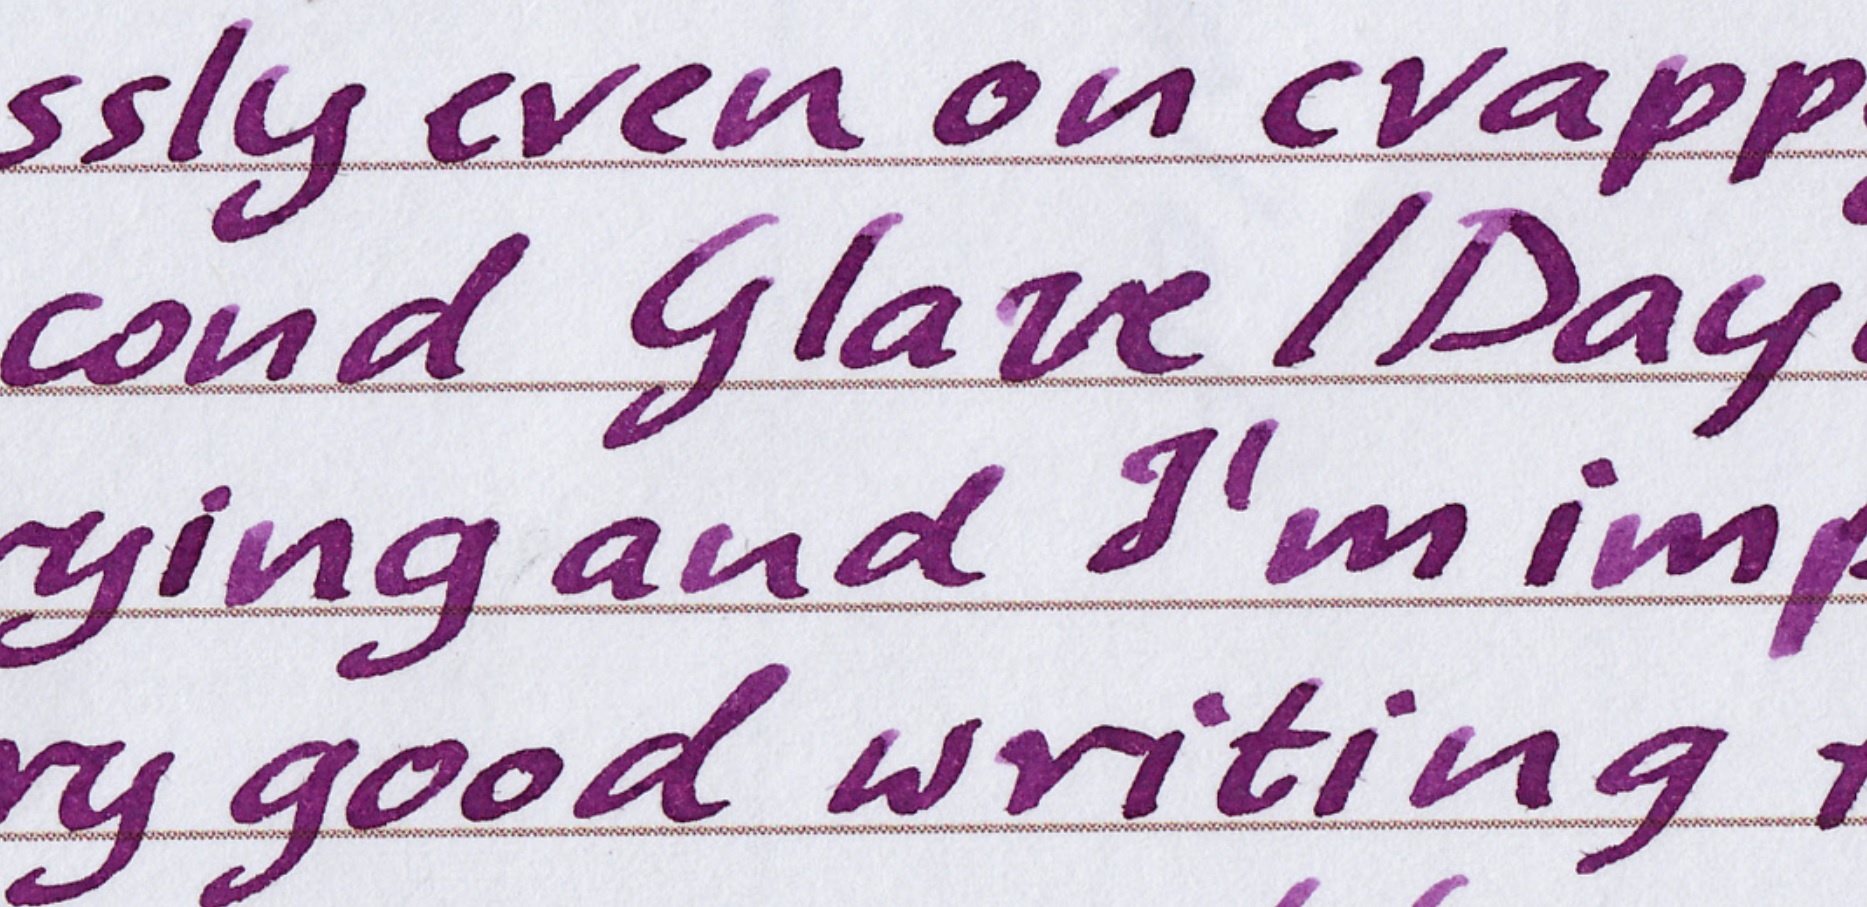 ssly even on crapp
cond Glare / Day
rying and I'm imp
ry good writing